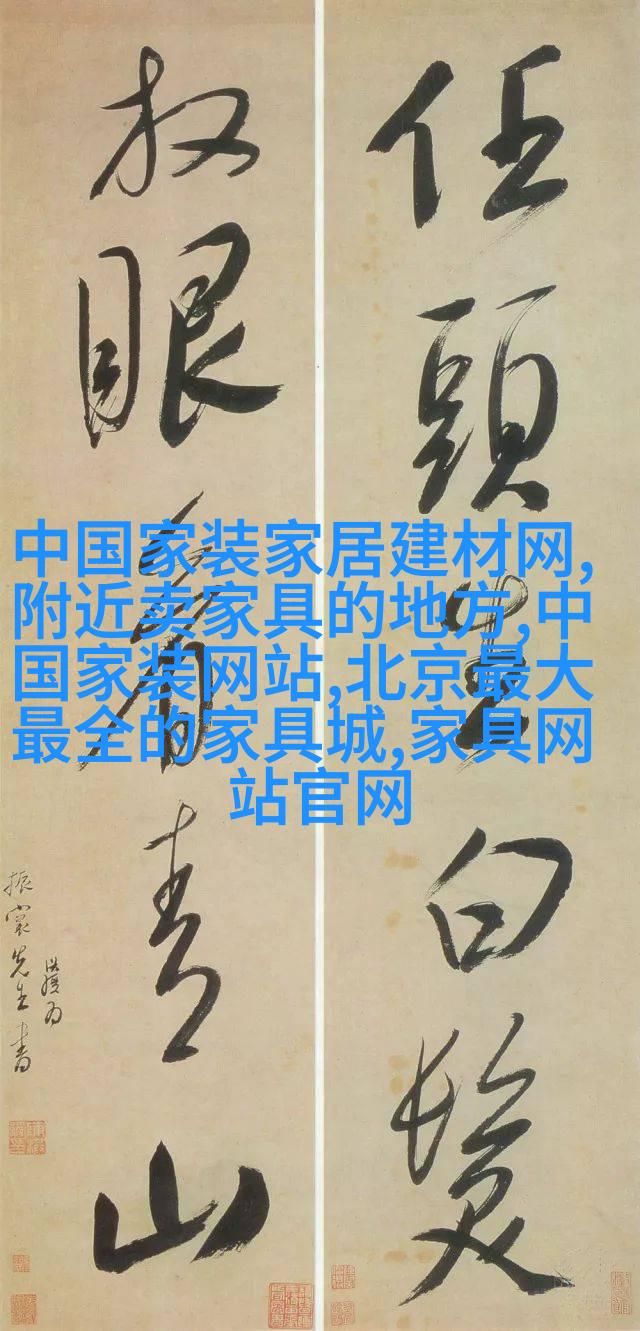 任頭生白髮
放眼看青山
先生書
中国家装家居建材网,
附近卖家具的地方,中
国家装网站,北京最大
最全的家具城,家具网
站官网